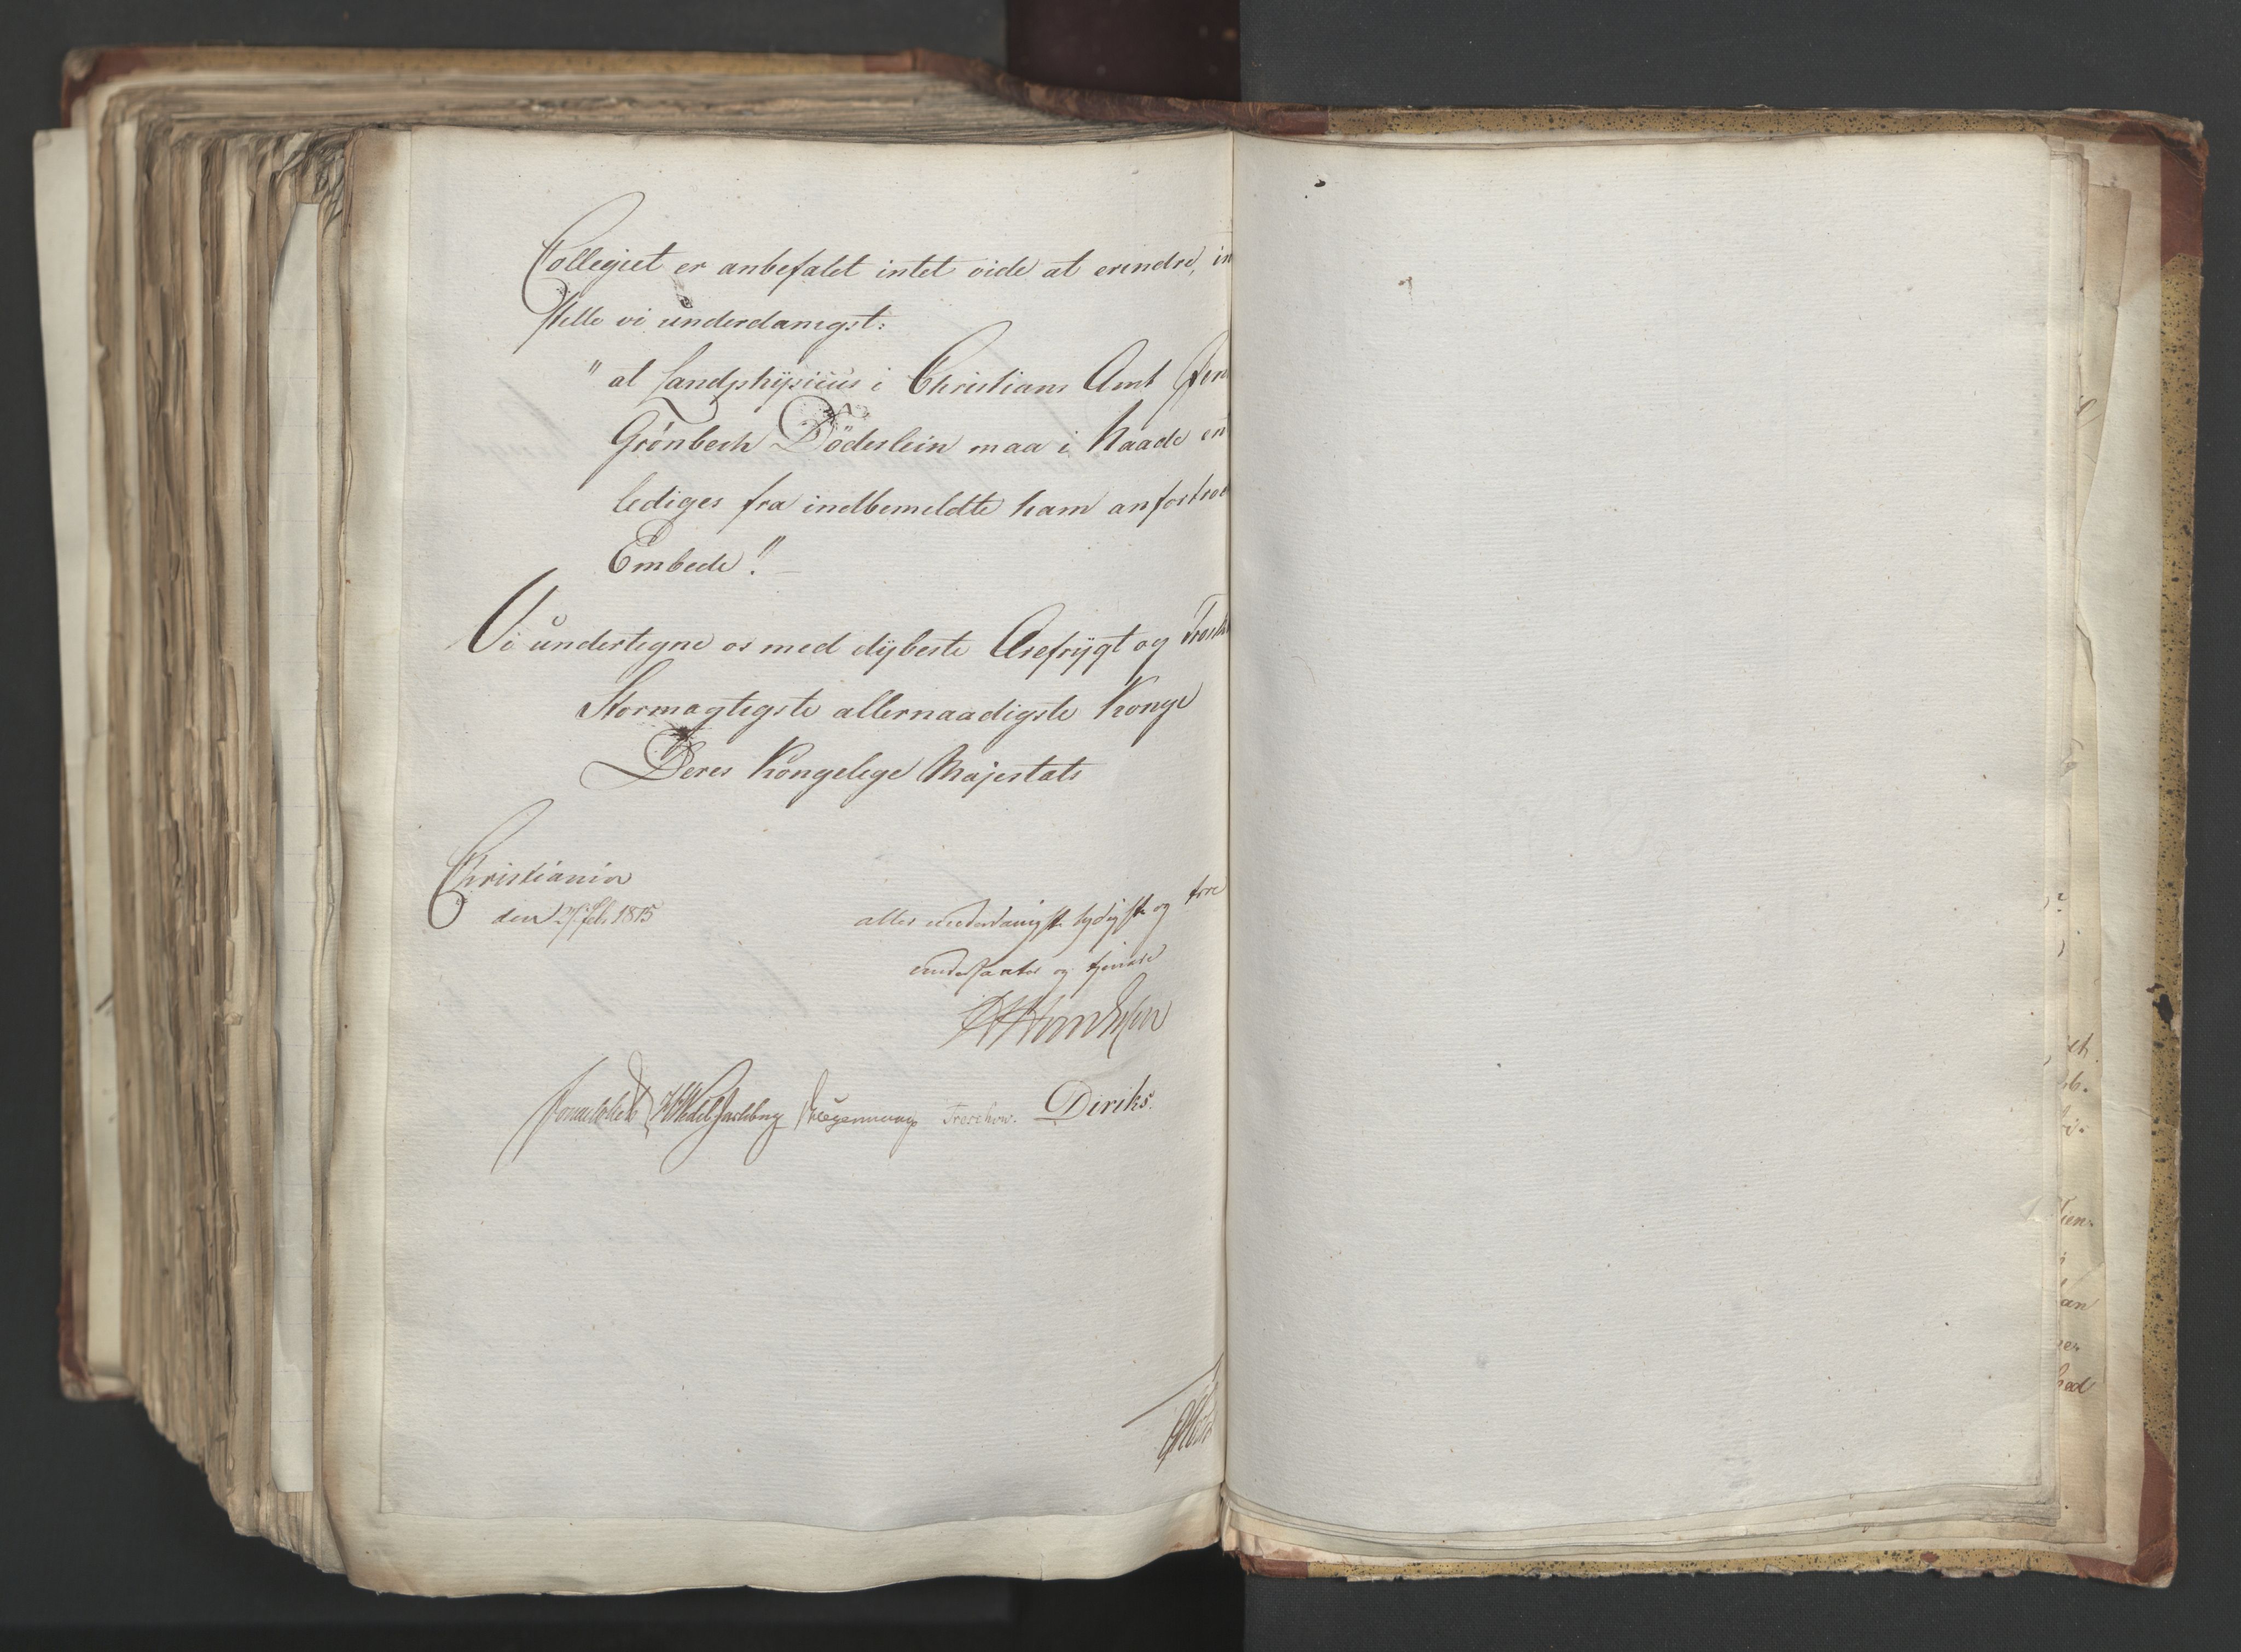 Collegiet er anbefalet intet vide at erindre, in
stille vi underdanigst:
" at Landphysicus i Christians Amt Jen
Grönbech Döderlein maa i Naade en
lediges fra indbemeldte ham anfortroe
Embede". –
Vi undertegne os med dybeste Ærefrygt og Trosk
Stormægtigste allernaadigste Konge
Deres Kongelige Majestæts
Christiania
den 27 Feb 1815
aller underdanigste lydigste og troe
undersaatter og tjenere
Sommerhielm Wedel Jarlsberg Treschow. Diriks.